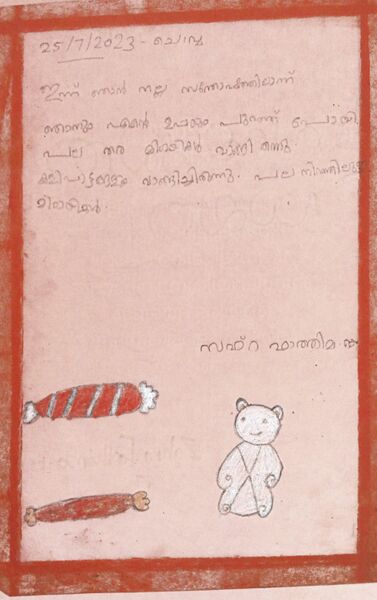 25/7/2023 - ചൊവ്വ
ഇന്ന് ഞാൻ നല്ല സന്തോഷത്തിലാണ്
ഞാനും എന്റെ ഉപ്പയും പുറത്ത് പോയി.
പല തര മിഠായികൾ വാങ്ങി തന്നു.
കളിപാട്ടങ്ങളും വാങ്ങിച്ചിരുന്നു. പല നിറത്തിലുള്ള
മിഠായികൾ.
സഫ്റ ഫാത്തിമ.